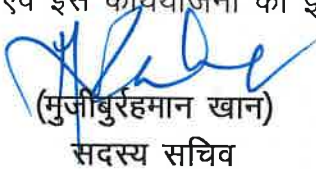 एवं इस कार्ययोजना को इ
(मुजीबुर्रहमान खान)
सदस्य सचिव